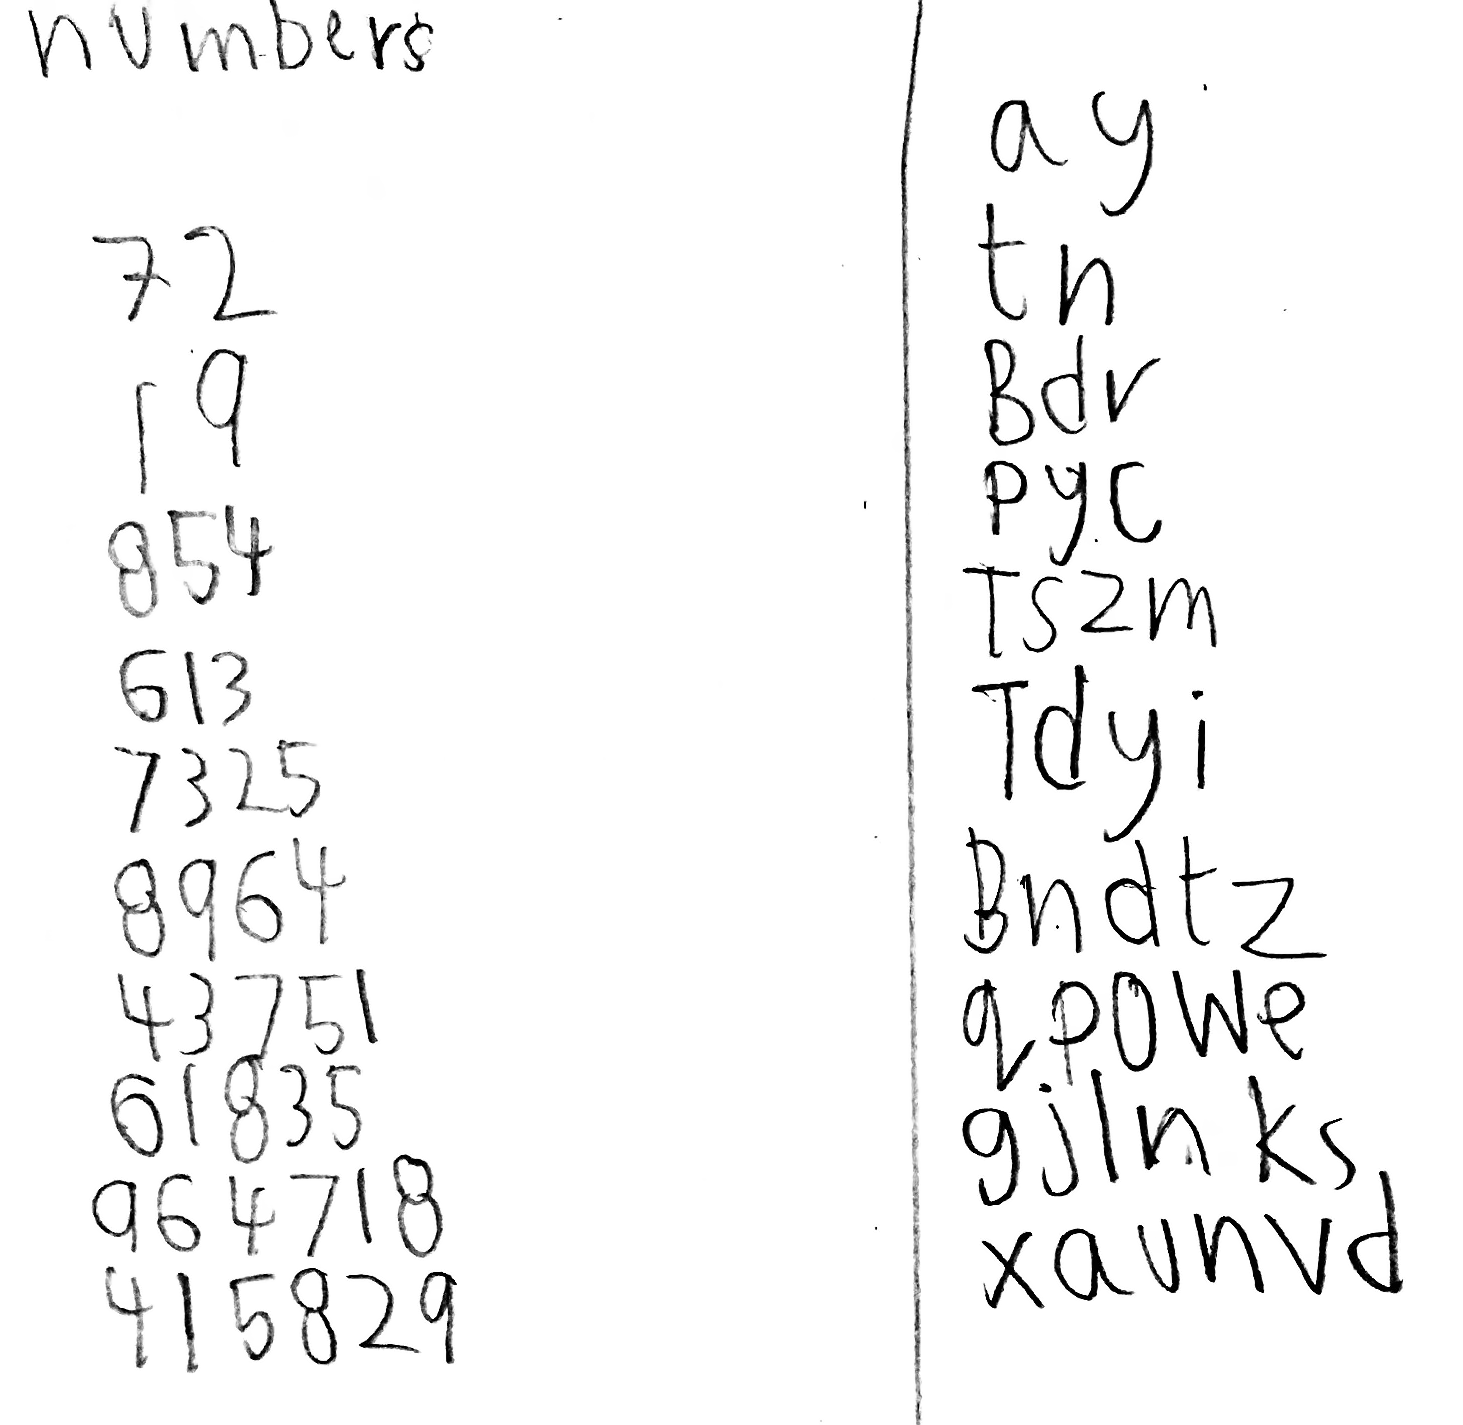 numbers
72
19
854
613
7325
8964
43751
61835
964718
415829
ay
tn
Bdr
pyc
Tszm
Tdyi
Bndtz
qpowe
gjlnks
xaunvd